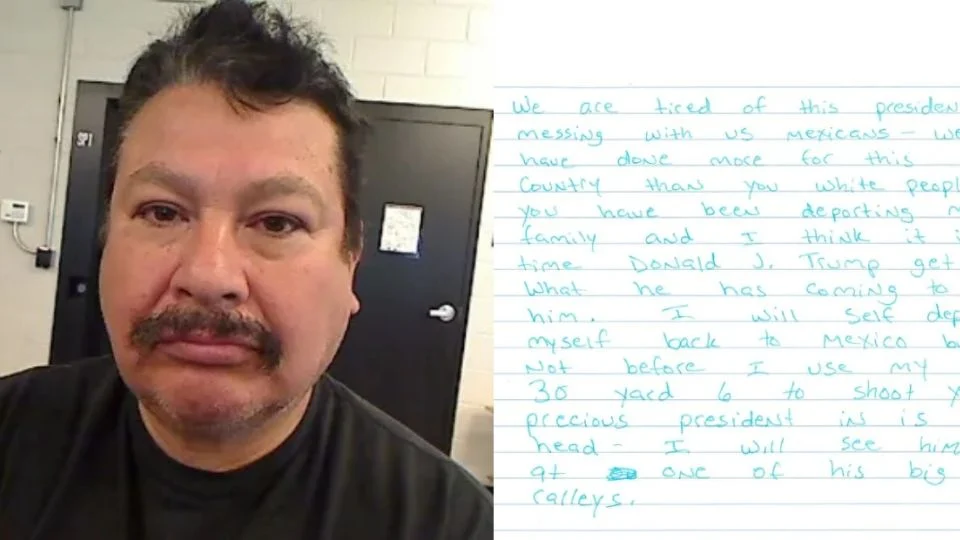 We are tired of this presiden
messing with us Mexicans - we
have done more for this
Country than you white peopl
you have been deporting m
family and I think it i
time Donald J. Trump get
What he has coming to
him. I will self dep
myself back to Mexico b
Not before I use my
30 yard 6 to shoot y
precious president in is
head - I will see him
at one of his big
ralleys.